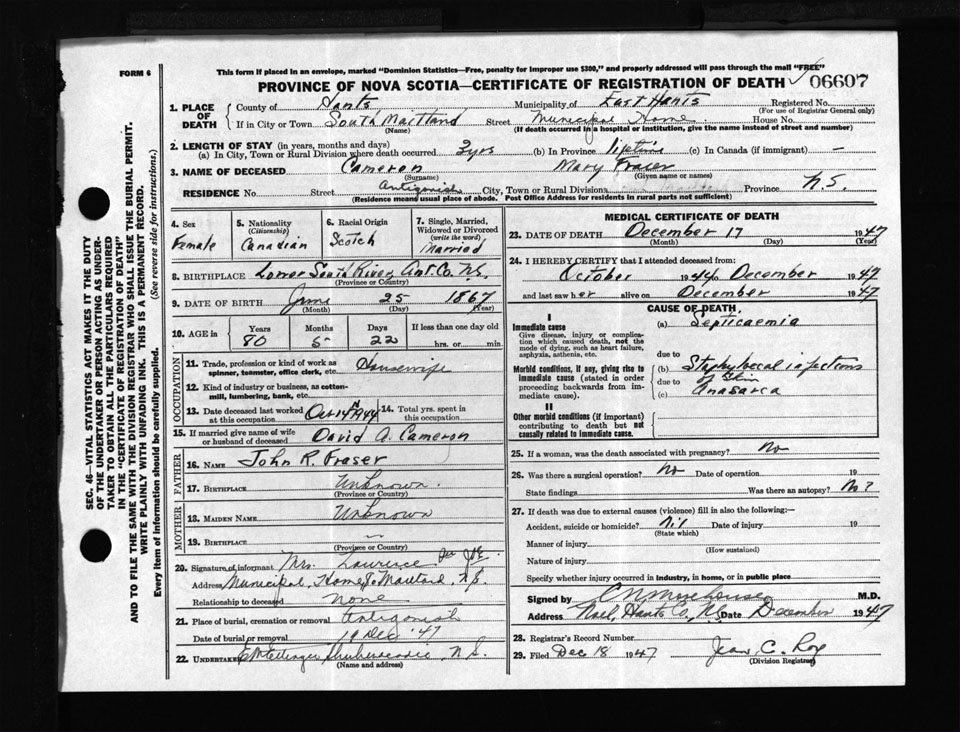 FORM 6
This form if placed in an envelope, marked "Dominion Statistics—Free, penalty for improper use $300," and properly addressed will pass through the mail "FREE"
PROVINCE OF NOVA SCOTIA—CERTIFICATE OF REGISTRATION OF DEATH
06607
1. PLACE OF DEATH
County of Hants Municipality of East Hants Registered No.
(For use of Registrar General only)
If in City or Town South Maitland Street Municipal Home House No.
(Name) (If death occurred in a hospital or institution, give the name instead of street and number)
2. LENGTH OF STAY (in years, months and days)
(a) In City, Town or Rural Division where death occurred 3 yrs (b) In Province lifetime (c) In Canada (if immigrant) —
3. NAME OF DECEASED Cameron Mary Fraser
(Surname) (Given name or names)
RESIDENCE No. Street Antigonish City, Town or Rural Division Province N.S.
(Residence means usual place of abode. Post Office Address for residents in rural parts not sufficient)
4. Sex Female
5. Nationality (Citizenship) Canadian
6. Racial Origin Scotch
7. Single, Married, Widowed or Divorced (write the word) Married
8. BIRTHPLACE Lower South River Ant. Co. N.S.
(Province or Country)
9. DATE OF BIRTH June 25 1867
(Month) (Day) (Year)
10. AGE in Years 80 Months 5 Days 22 If less than one day old hrs. or min.
OCCUPATION
11. Trade, profession or kind of work as spinner, teamster, office clerk, etc. Housewife
12. Kind of industry or business, as cotton-mill, lumbering, bank, etc.
13. Date deceased last worked at this occupation Oct 14 1944 14. Total yrs. spent in this occupation
15. If married give name of wife or husband of deceased David A. Cameron
FATHER
16. NAME John R. Fraser
17. BIRTHPLACE Unknown
(Province or Country)
MOTHER
18. MAIDEN NAME Unknown
19. BIRTHPLACE —
(Province or Country)
20. Signature of informant Mrs. Lawrence
Address Municipal Home S. Maitland, N.S.
Relationship to deceased None
21. Place of burial, cremation or removal Antigonish
Date of burial or removal 19 Dec '47
22. UNDERTAKER Shubenacadie, N.S.
(Name and address)
MEDICAL CERTIFICATE OF DEATH
23. DATE OF DEATH December 17 1947
(Month) (Day) (Year)
24. I HEREBY CERTIFY that I attended deceased from:
October 1944 to December 1947
and last saw her alive on December 1947
CAUSE OF DEATH
I
Immediate cause
Give disease, injury or complication which caused death, not the mode of dying, such as heart failure, asphyxia, asthenia, etc.
(a) Septicaemia
due to
Morbid conditions, if any, giving rise to immediate cause (stated in order proceeding backwards from immediate cause).
(b) Staphylococcal infections of skin
due to
(c) Anasarca
II
Other morbid conditions (if important) contributing to death but not causally related to immediate cause.
25. If a woman, was the death associated with pregnancy? No
26. Was there a surgical operation? No Date of operation 19
State findings Was there an autopsy? No
27. If death was due to external causes (violence) fill in also the following:—
Accident, suicide or homicide? Nil Date of injury 19
(State which)
Manner of injury
(How sustained)
Nature of injury
Specify whether injury occurred in industry, in home, or in public place
Signed by C N Morehouse M.D.
Address Noel, Hants Co., N.S. Date December 1947
28. Registrar's Record Number
29. Filed Dec 18 1947 Jean C. Roy
(Division Registrar)
SEC. 46—VITAL STATISTICS ACT MAKES IT THE DUTY
OF THE UNDERTAKER OR PERSON ACTING AS UNDER-
TAKER TO OBTAIN ALL THE PARTICULARS REQUIRED
IN THE "CERTIFICATE OF REGISTRATION OF DEATH"
AND TO FILE THE SAME WITH THE DIVISION REGISTRAR WHO SHALL ISSUE THE BURIAL PERMIT.
WRITE PLAINLY WITH UNFADING INK. THIS IS A PERMANENT RECORD.
Every item of information should be carefully supplied. (See reverse side for instructions.)